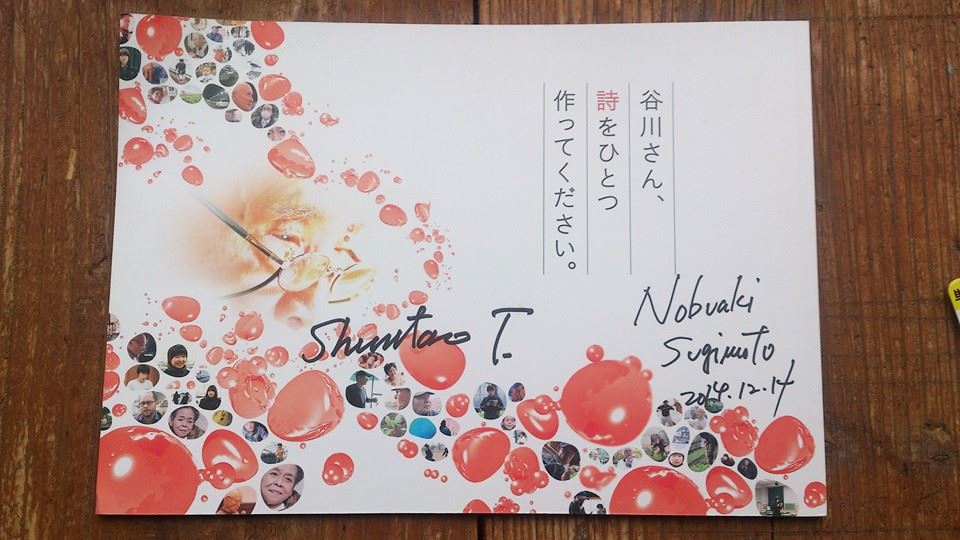 谷川さん、
詩をひとつ
作ってください。
Shuntaro T.
Nobuaki
Sugimoto
2014.12.14